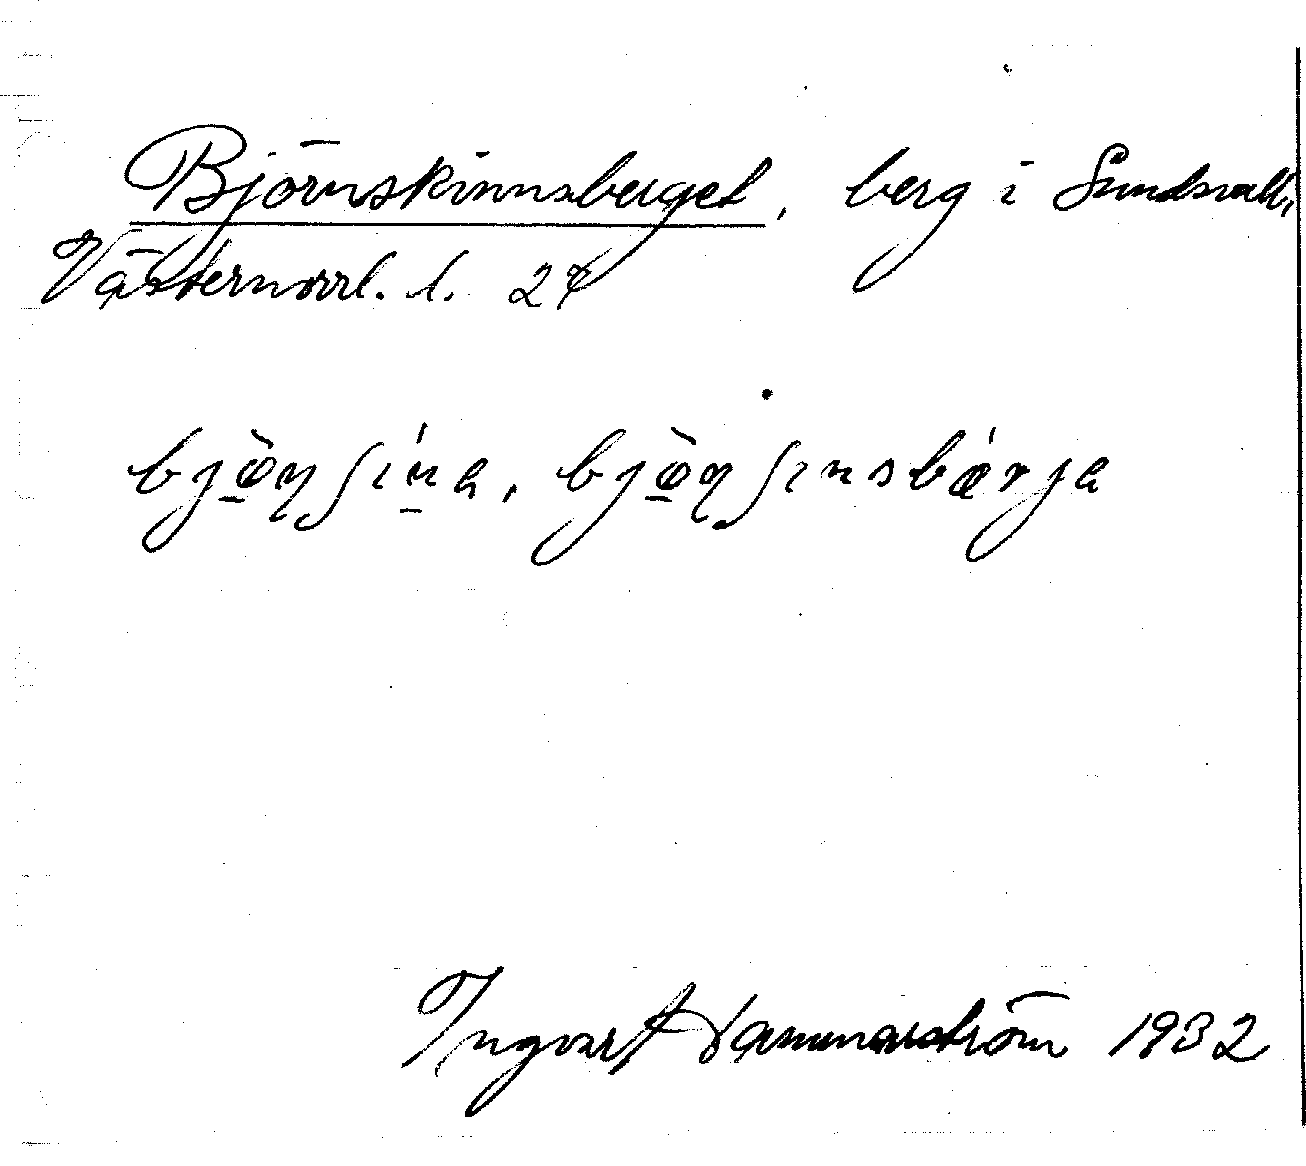 Björnskinnsberget, berg i Sundsvall,
Västernorrl. l. 27
bjö̱̀ɳʃíṉa, bjö̱̀ɳʃinsbǽrja
Ingvart Hammarström 1932